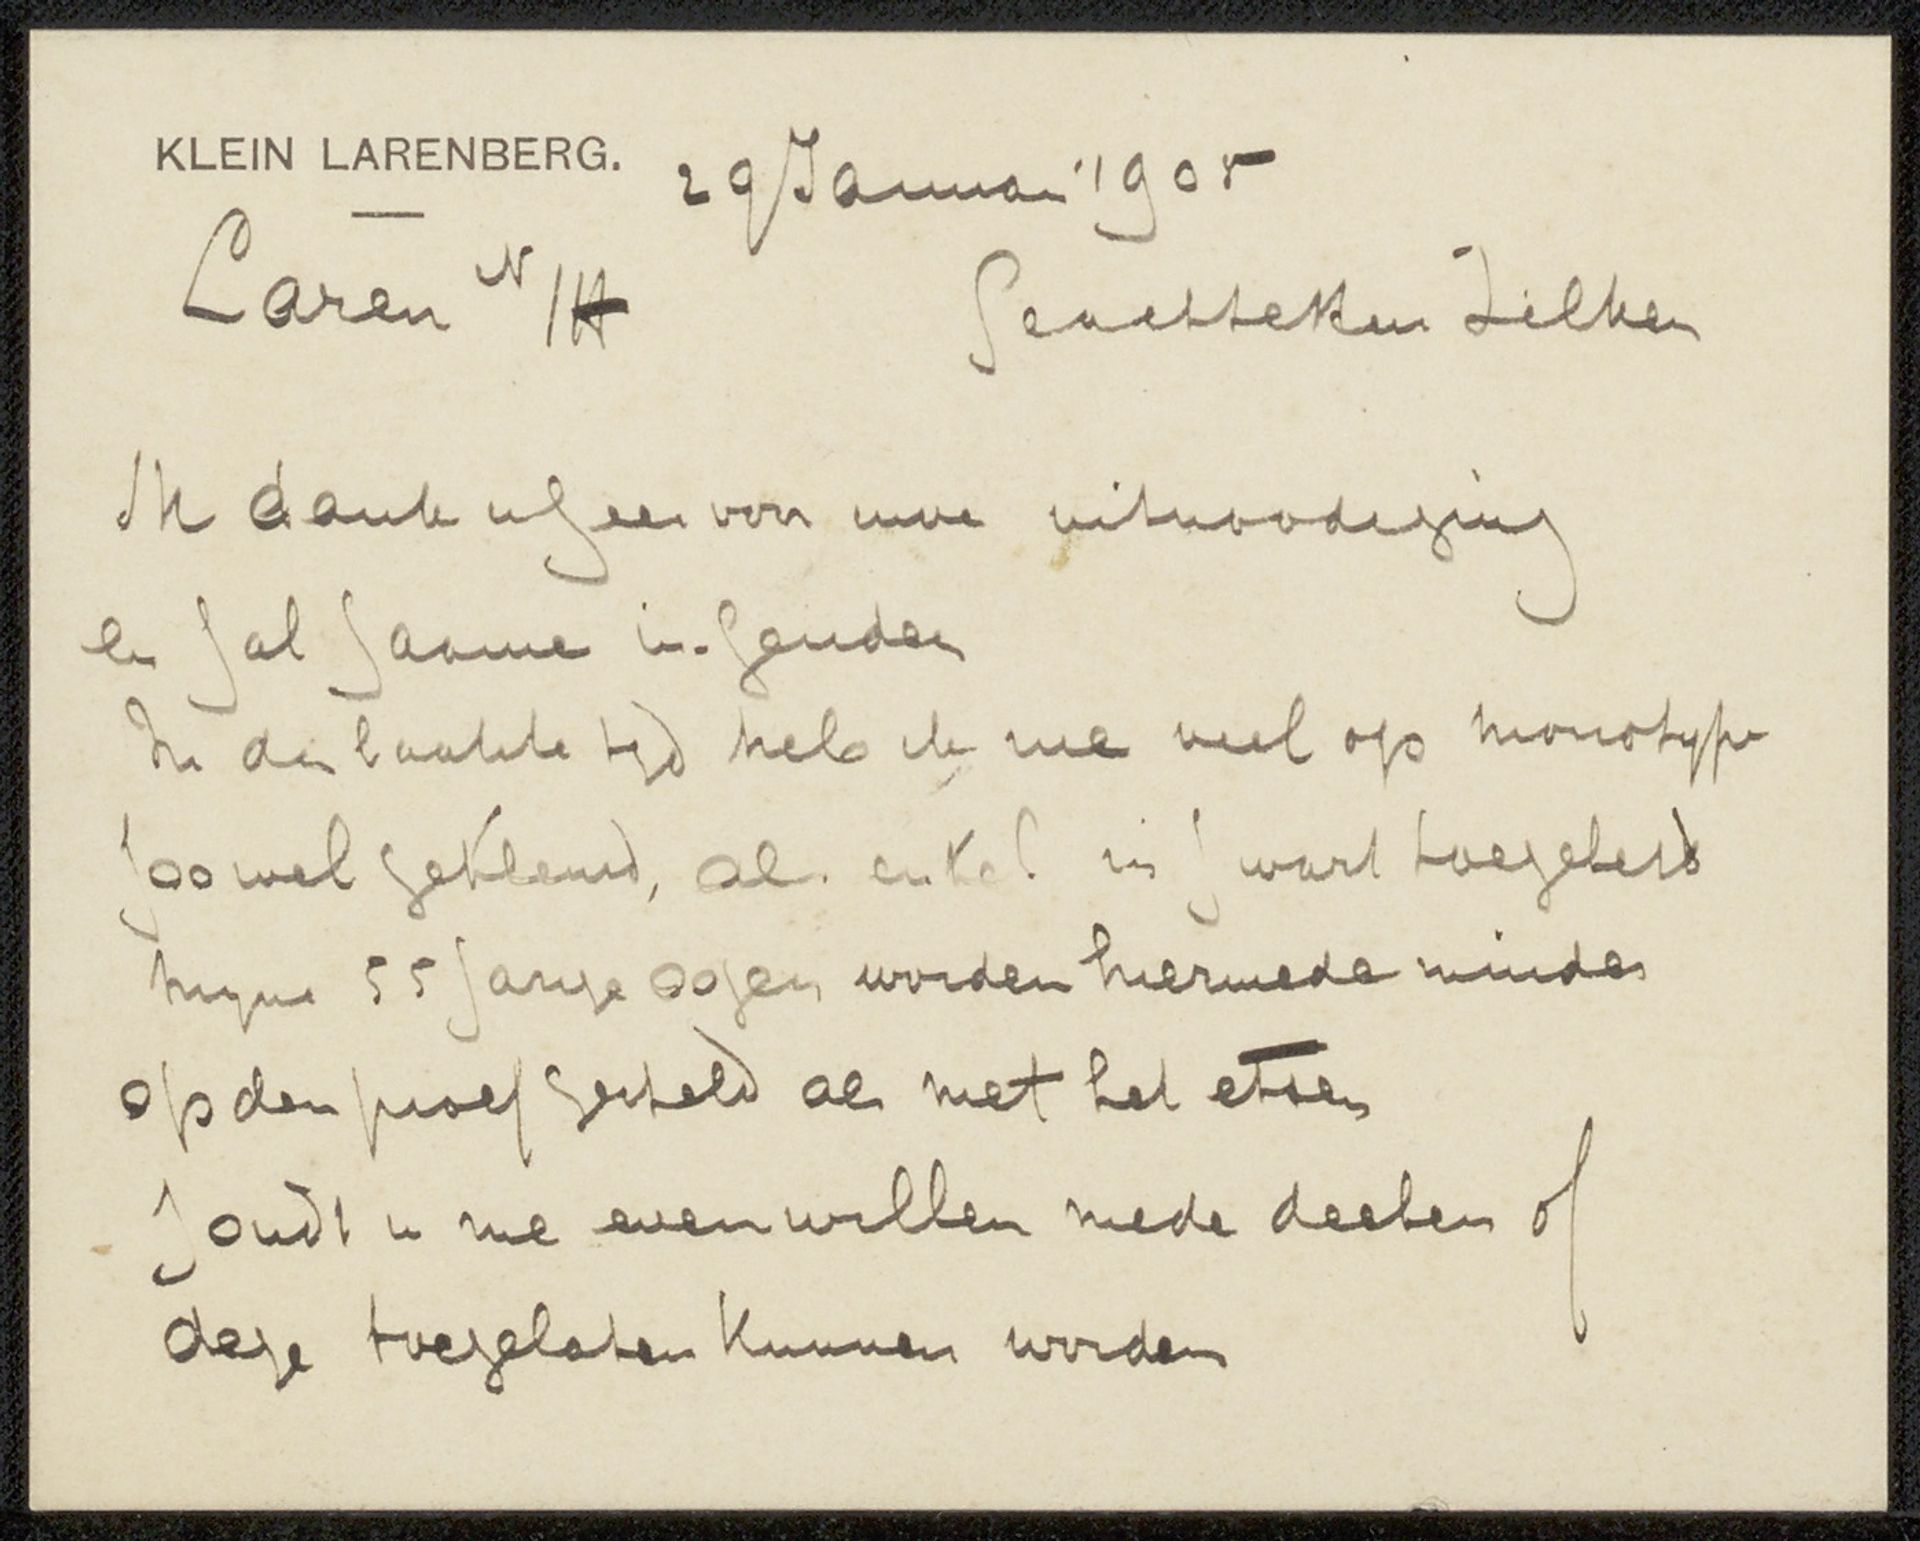 KLEIN LARENBERG.
29 Januari 1905
Laren N/H
Geachte Heer Zilken
Ik dank u zeer voor uwe uitnoodiging
en zal gaarne in zenden
In den laatste tijd heb ik me veel op monotype
zoowel gekleurd, als enkel in zwart toegelegd
mijne 55 jarige oogen worden hiermede minder
op den proef gesteld als met het etsen
Zoudt u me even willen mede deelen of
deze toegelaten kunnen worden